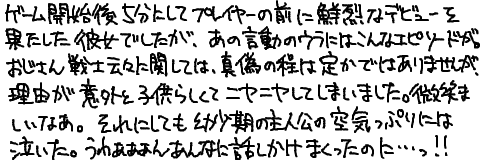 ゲーム開始後5分にしてプレイヤーの前に鮮烈なデビューを
果たした彼女でしたが、あの言動のウラにはこんなエピソードが。
おじさん戦士云々に関しては、真偽の程は定かではありませんが、
理由が意外と子供らしくてニヤニヤしてしまいました。微笑ま
しいなあ。それにしても幼少期の主人公の空気っぷりには
泣いた。うわぁああんあんなに話しかけまくったのに…っ!!